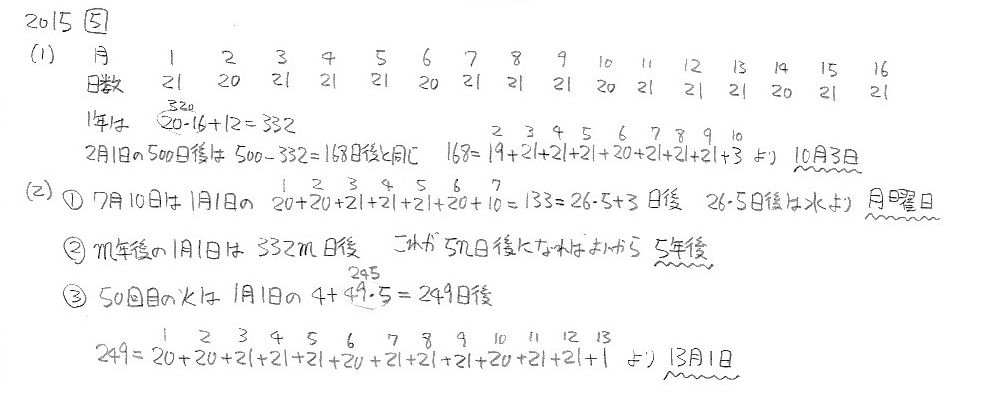 2015 5
(1) 月 1 2 3 4 5 6 7 8 9 10 11 12 13 14 15 16
日数 21 20 21 21 21 20 21 21 21 20 21 21 21 20 21 21
320
1年は 20・16+12=332
2 3 4 5 6 7 8 9 10
2月1日の500日後は 500-332=168日後と同じ 168=19+21+21+21+20+21+21+21+3 より 10月3日
1 2 3 4 5 6 7
(2) ① 7月10日は1月1日の 20+20+21+21+21+20+10=133=26・5+3 日後 26・5日後は水より 月曜日
② m年後の1月1日は 332m日後 これが5n日後になればよいから 5年後
245
③ 50回目の火は 1月1日の 4+49・5=249日後
1 2 3 4 5 6 7 8 9 10 11 12 13
249=20+20+21+21+21+20+21+21+21+20+21+21+1 より 13月1日